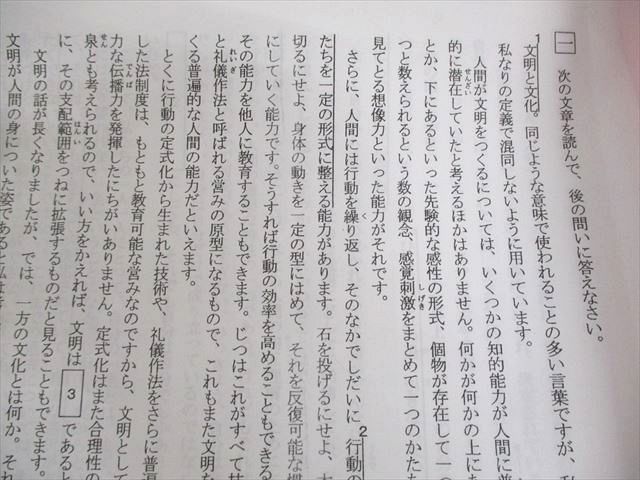 一 次の文章を読んで、後の問いに答えなさい。
1 文明と文化。同じような意味で使われることの多い言葉ですが、
私なりの定義で混同しないように用いています。
人間が文明をつくるについては、いくつかの知的能力が人間に
的に潜在していたと考えるほかはありません。何かが何かの上に
とか、下にあるといった先験的な感性の形式、個物が存在して一
つと数えられるという数の観念、感覚刺激をまとめて一つのかた
見てとる想像力といった能力がそれです。
さらに、人間には行動を繰り返し、そのなかでしだいに、2 行動の
たちを一定の形式に整える能力があります。石を投げるにせよ、
切るにせよ、身体の動きを一定の型にはめて、それを反復可能な
にしていく能力です。そうすれば行動の効率を高めることもできる
その能力を他人に教育することもできます。じつはこれがすべて
と礼儀作法と呼ばれる営みの原型になるもので、これもまた文明を
くる普遍的な人間の能力だといえます。
とくに行動の定式化から生まれた技術や、礼儀作法をさらに普遍
した法制度は、もともと教育可能な営みなのですから、文明として
力な伝播力を発揮したにちがいありません。定式化はまた合理性の
泉とも考えられるので、いい方をかえれば、文明は 3 であると
に、その支配範囲をつねに拡張するものだと見ることもできます。
文明の話が長くなりましたが、では、一方の文化とは何か。それ
文明が人間の身についた姿であると私は